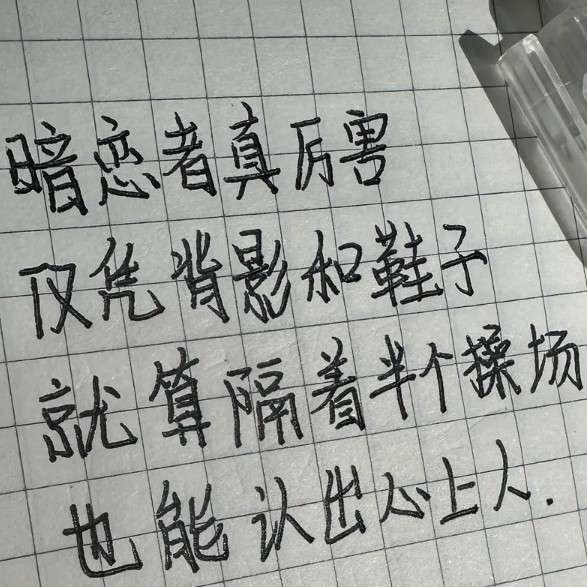 暗恋者真厉害
仅凭背影和鞋子
就算隔着半个操场
也能认出心上人.